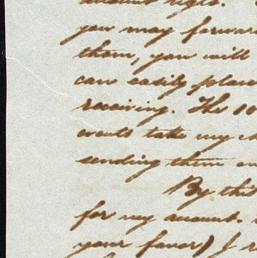 you may forward
them, you will
can easily place
receiving. The 10
would take my
sending them
By this
for my account.
your favor) I